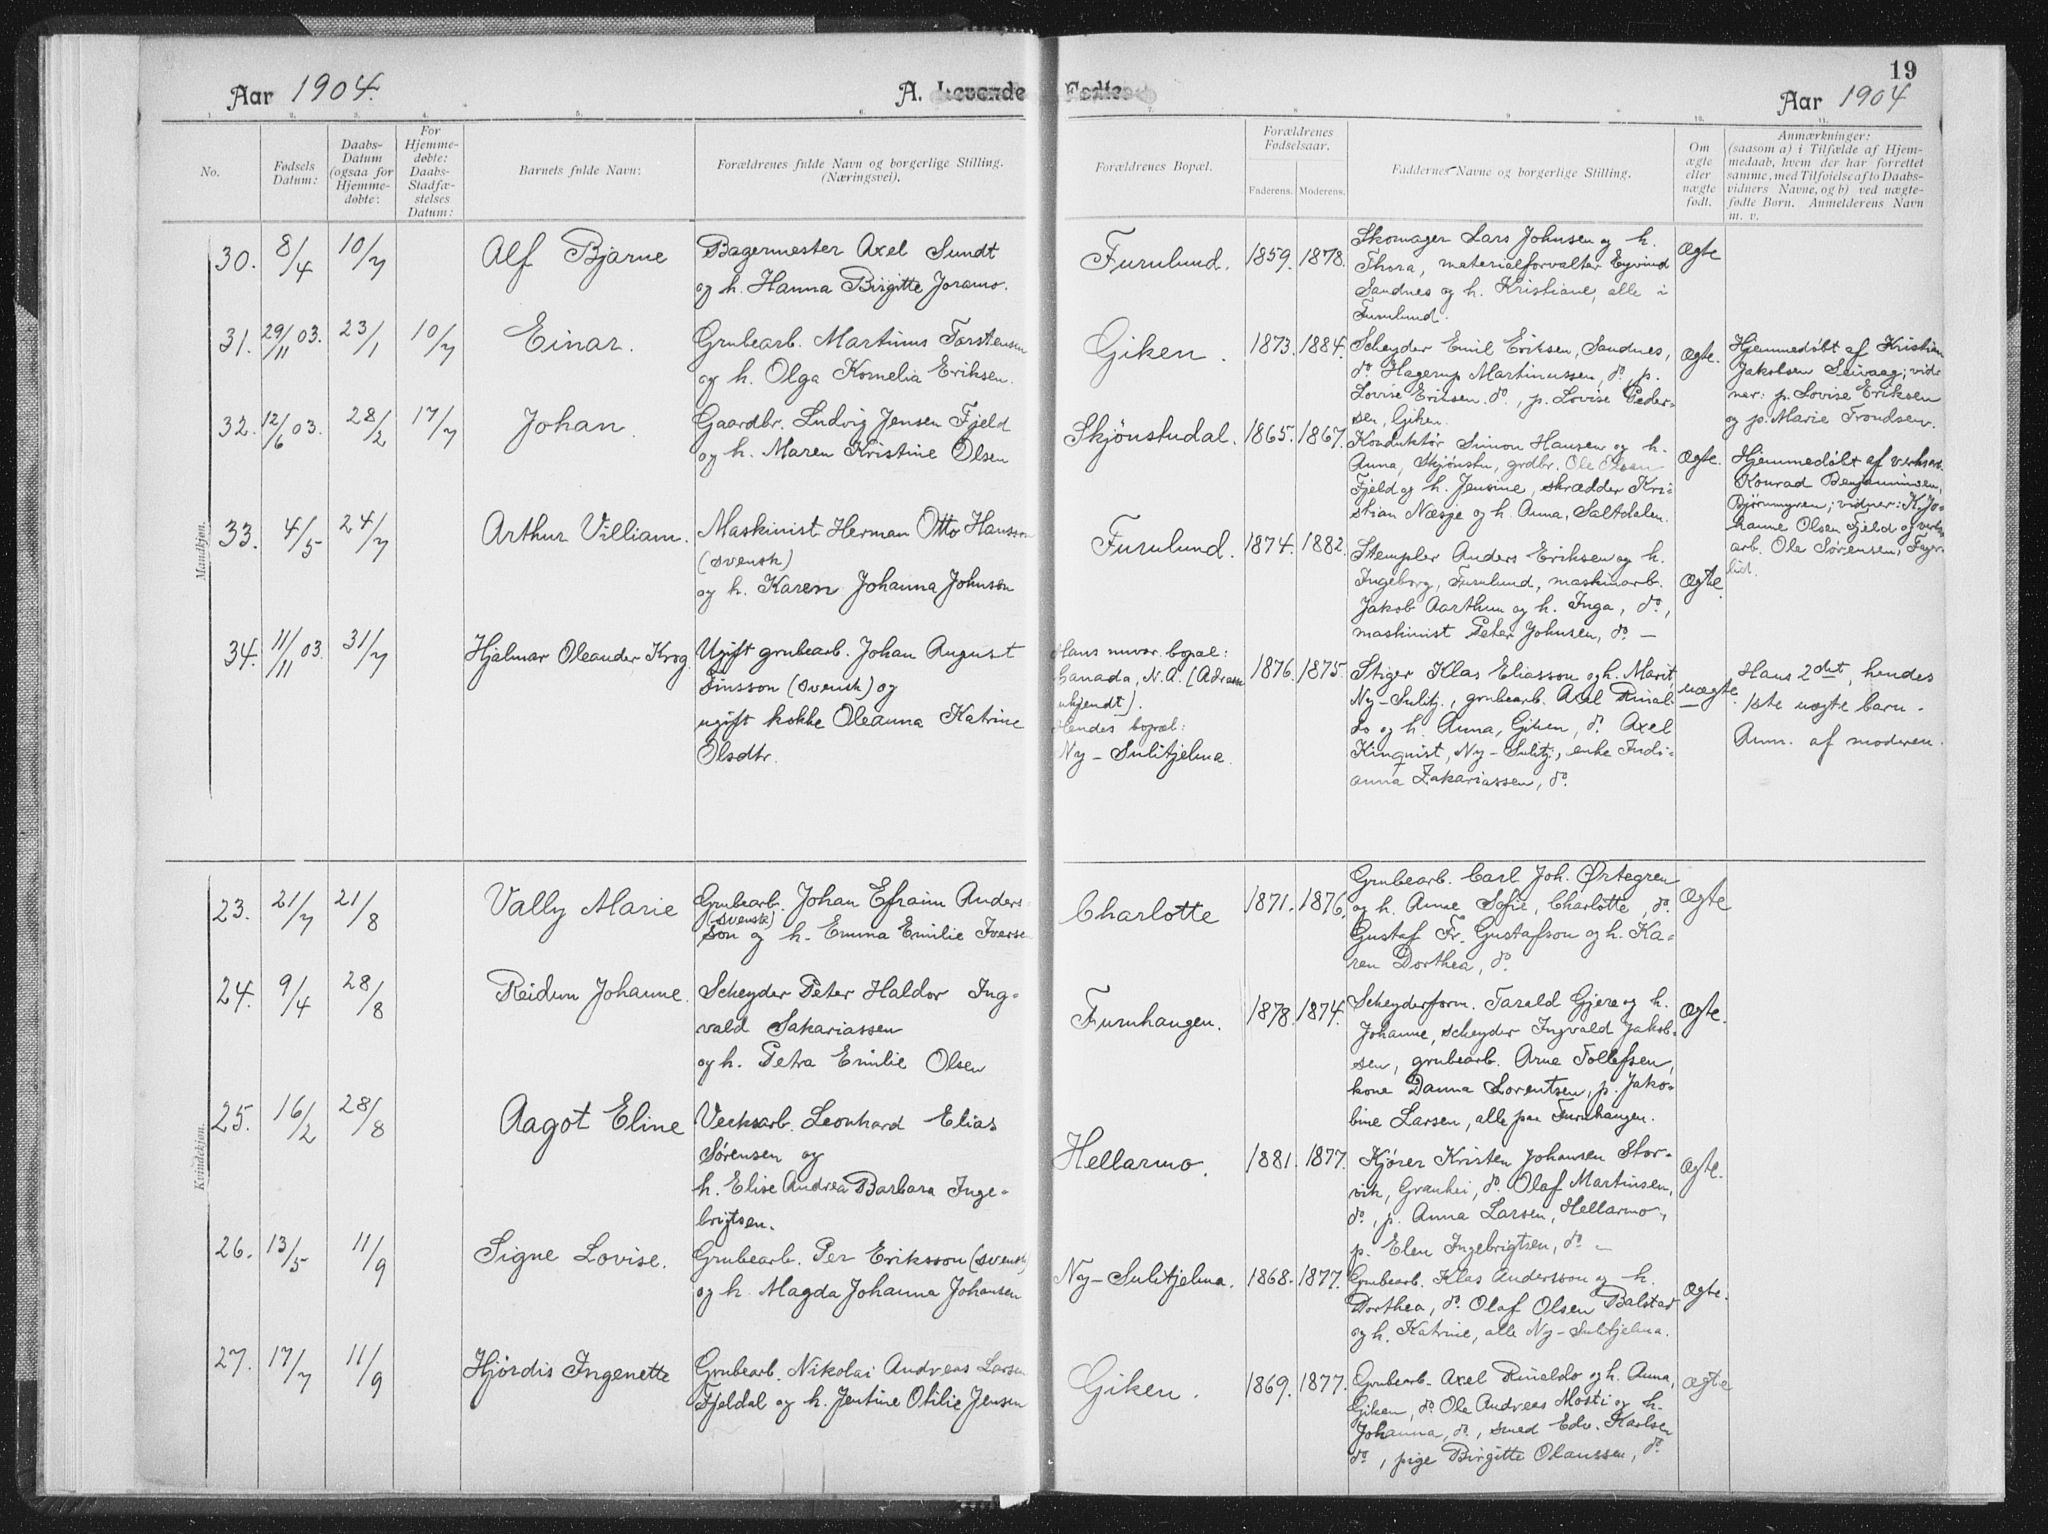 Aar 1904.
A. Levende Fødte.
19
Aar 1904
1. 2. 3. 4. 5. 6. 7. 8. 9. 10. 11.
No.
Fødsels Datum:
Daabs-Datum (ogsaa for Hjemme-døbte:
For Hjemme-døbte: Daabs-Stadfæ-stelses Datum:
Barnets fulde Navn:
Forældrenes fulde Navn og borgerlige Stilling. (Næringsvei).
Forældrenes Bopæl.
Forældrenes Fødselsaar.
Faderens. Moderens.
Faddernes Navne og borgerlige Stilling.
Om ægte eller uægte født.
Anmærkninger:
(saasom a) i Tilfælde af Hjem-
medaab, hvem der har forrettet
samme, med Tilføielse af to Daabs-
vidners Navne, og b) ved uægte-
fødte Børn. Anmelderens Navn
m. v.
Mandkjøn.
30. 8/4 10/7 Alf Bjarne
Bagermester Axel Sundt
og h. Hanna Birgitte Joramo.
Furulund. 1859. 1878.
Skomager Lars Johnsen og h.
Thora, materialforvalter Eyvind
Sandnes og h. Kristiane, alle i
Furulund.
Ægte
31. 29/11 03. 23/1 10/7 Einar.
Grubearb. Martinus Torstensen
og h. Olga Kornelia Eriksen.
Giken. 1873. 1884.
Scheyder Emil Eriksen, Sandnes,
do. Hagerup Martinussen, do. p.
Lovise Eriksen do., p. Lovise Peder-
sen, Giken.
Ægte.
Hjemmedøbt af Kristian
Jakobsen Seivaag; vid-
ner: p. Lovise Eriksen
og p. Marie Trondsen.
32. 12/6 03. 28/2 17/7 Johan.
Gaardbr. Ludvig Jensen Fjeld
og h. Maren Kristine Olsen
Skjönstudal. 1865. 1867.
Konduktør Simon Hansen og h.
Anna, Skjönstu, grdbr. Ole Olsen
Fjeld og h. Jensine, skrædder Kri-
stian Næsje og h. Anna, Saltdalen.
Ægte.
Hjemmedøbt af verksarb.
Konrad Benjaminsen,
Bjørnmyren; vidner: K. Jo-
hanne Olsen Fjeld og verks-
arb. Ole Sørensen, Fager-
lid.
33. 4/5 24/7 Arthur Villiam.
Maskinist Herman Otto Hansson
(svensk)
og h. Karen Johanna Johnsen
Furulund. 1874. 1882.
Stempler Anders Eriksen og h.
Ingeborg, Furulund, maskinarb.
Jakob Aarthun og h. Inga, do.,
maskinist Peter Johnsen, do. —
Ægte.
34. 11/11 03. 31/7 Hjalmar Oleander Krog
Ugift grubearb. Johan August
Finsson (svensk) og
ugift kokke Oleanna Katrine
Olsdtr.
Hans nuvær. bopæl:
Canada, N.A. (Adresse
ukjendt).
Hendes bopæl:
Ny-Sulitjelma.
1876. 1875.
Stiger Klas Eliasson og h. Marit,
Ny-Sulitj., grubearb. Axel Rinal-
do og h. Anna, Giken, do. Axel
Kinquist, Ny-Sulitj., enke Indi-
anna Zakariassen, do.
uægte.
Hans 2det, hendes
1ste uægte barn.
Anm. af moderen.
Kvindekjøn.
23. 21/7 21/8 Vally Marie
Grubearb. Johan Efraim Anders-
(svensk)
son og h. Emma Emilie Iversen
Charlotte 1871. 1876.
Grubearb. Carl Joh. Ørtegren
og h. Anne Sofie, Charlotte, do.
Gustaf Fr. Gustafson og h. Ka-
ren Dorthea, do.
Ægte
24. 9/4 28/8 Reidun Johanne.
Scheyder Peter Haldor Ing-
vald Sakariassen
og h. Petra Emilie Olsen
Furuhaugen. 1878. 1874.
Scheyderform. Tarald Gjere og h.
Johanne, scheyder Ingvald Jakob-
sen, grubearb. Arne Tollefsen,
kone Danna Lorentsen, p. Jako-
bine Larsen, alle paa Furuhaugen.
Ægte.
25. 16/2 28/8 Aagot Eline
Verksarb. Leonhard Elias
Sørensen og
h. Elise Andrea Barbara Inge-
brigtsen.
Hellarmo. 1881. 1877.
Kjører Kristen Johansen Stor-
vik, Granhei, do. Olaf Martinsen,
do., p. Anna Larsen, Hellarmo,
p. Elen Ingebrigtsen, do. —
Ægte.
26. 13/5 11/9 Signe Lovise.
Grubearb. Per Eriksson (svensk)
og h. Magda Johanna Johansen
Ny-Sulitjelma. 1868. 1877.
Grubearb. Klas Andersson og h.
Dorthea, do. Olaf Olsen Balstad
og h. Katrine, alle Ny-Sulitjelma.
Ægte.
27. 17/7 11/9 Hjørdis Ingenette
Grubearb. Nikolai Andreas Larsen
Fjeldal og h. Jentine Otilie Jensen
Giken. 1869. 1877.
Grubearb. Axel Rinaldo og h. Anna,
Giken, do. Ole Andreas Mosti og h.
Johanna, do., smed Edv. Karlsen
do., pige Birgitte Olaussen, do.
Ægte